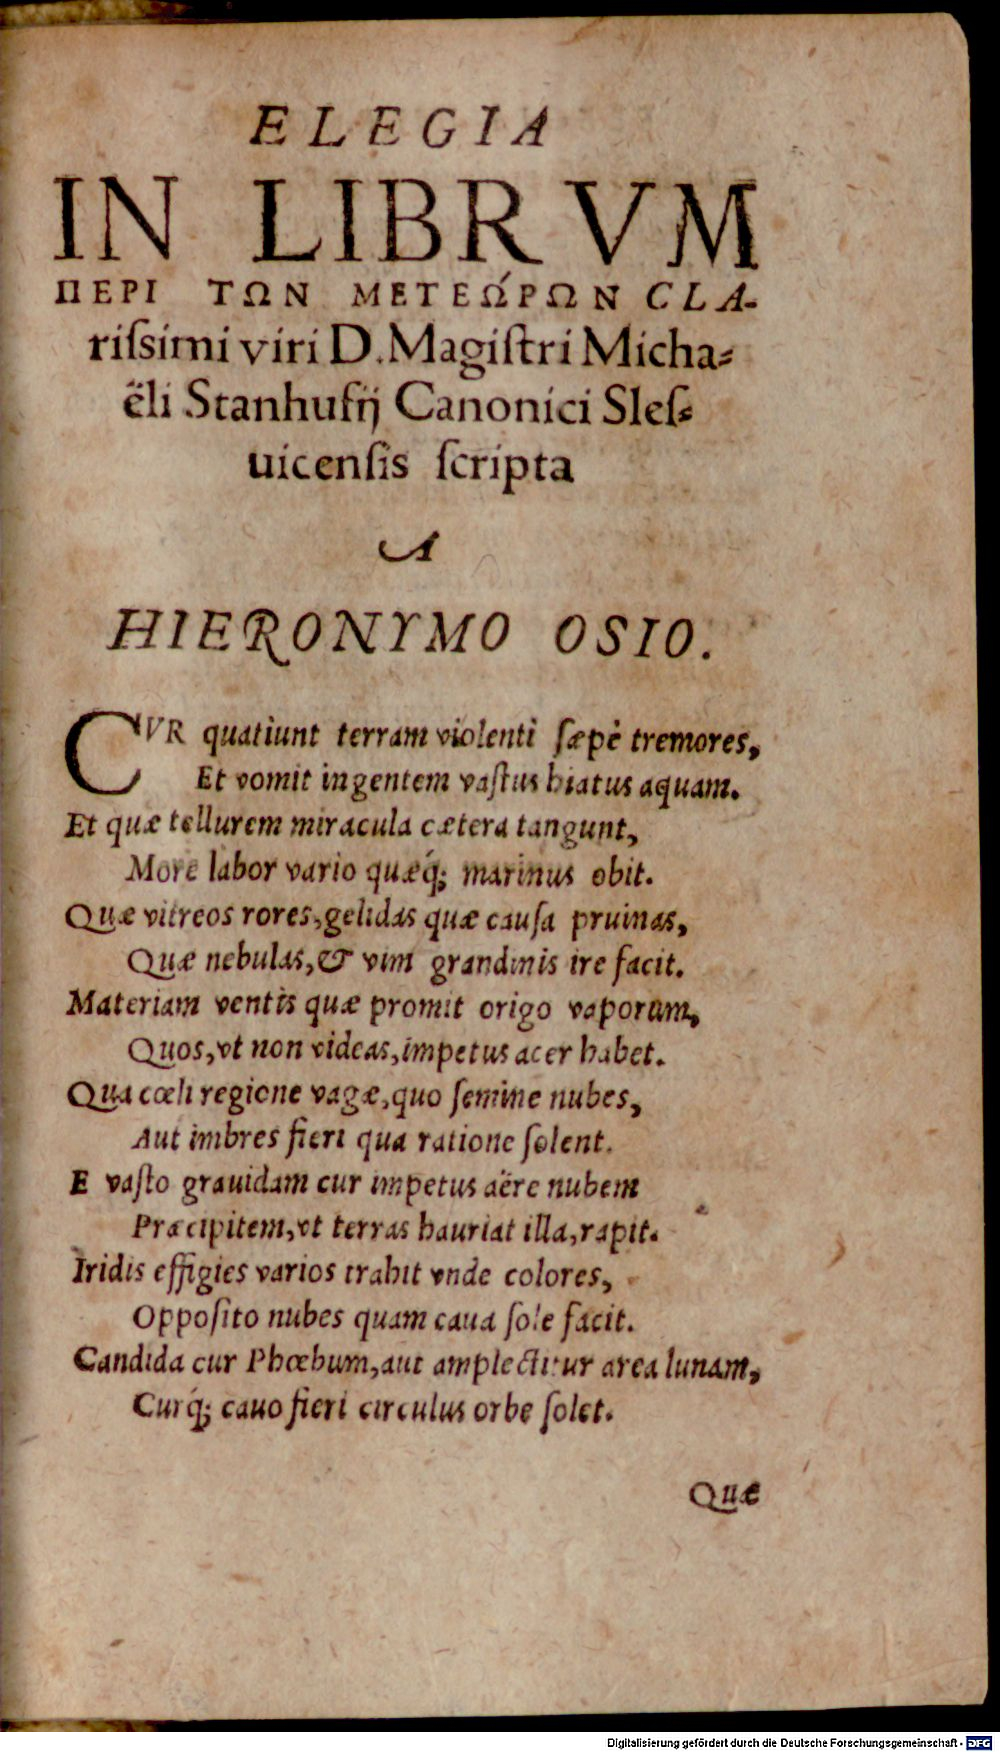 ELEGIA
IN LIBRVM
ΠΕΡΙ ΤΩΝ ΜΕΤΕΏΡΩΝ CLA-
riſsimi viri D. Magiſtri Micha⸗
ëli Stanhufij Canonici Sleſ⸗
uicenſis ſcripta
A
HIERONYMO OSIO.
CVR quatiunt terram violenti ſæpè tremores,
Et vomit ingentem vaſtus hiatus aquam.
Et quæ tellurem miracula cætera tangunt,
More labor vario quæq́; marinus obit.
Quæ vitreos rores, gelidas quæ cauſa pruinas,
Quæ nebulas, & vim grandinis ire facit.
Materiam ventis quæ promit origo vaporum,
Quos, vt non videas, impetus acer habet.
Qua cœli regione vagæ, quo ſemine nubes,
Aut imbres fieri qua ratione ſolent.
E vaſto grauidam cur impetus aëre nubem
Præcipitem, vt terras hauriat illa, rapit.
Iridis effigies varios trahit vnde colores,
Oppoſito nubes quam caua ſole facit.
Candida cur Phœbum, aut amplectitur area lunam,
Curq́; cauo fieri circulus orbe ſolet.
Quæ
Digitalisierung gefördert durch die Deutsche Forschungsgemeinschaft - DFG